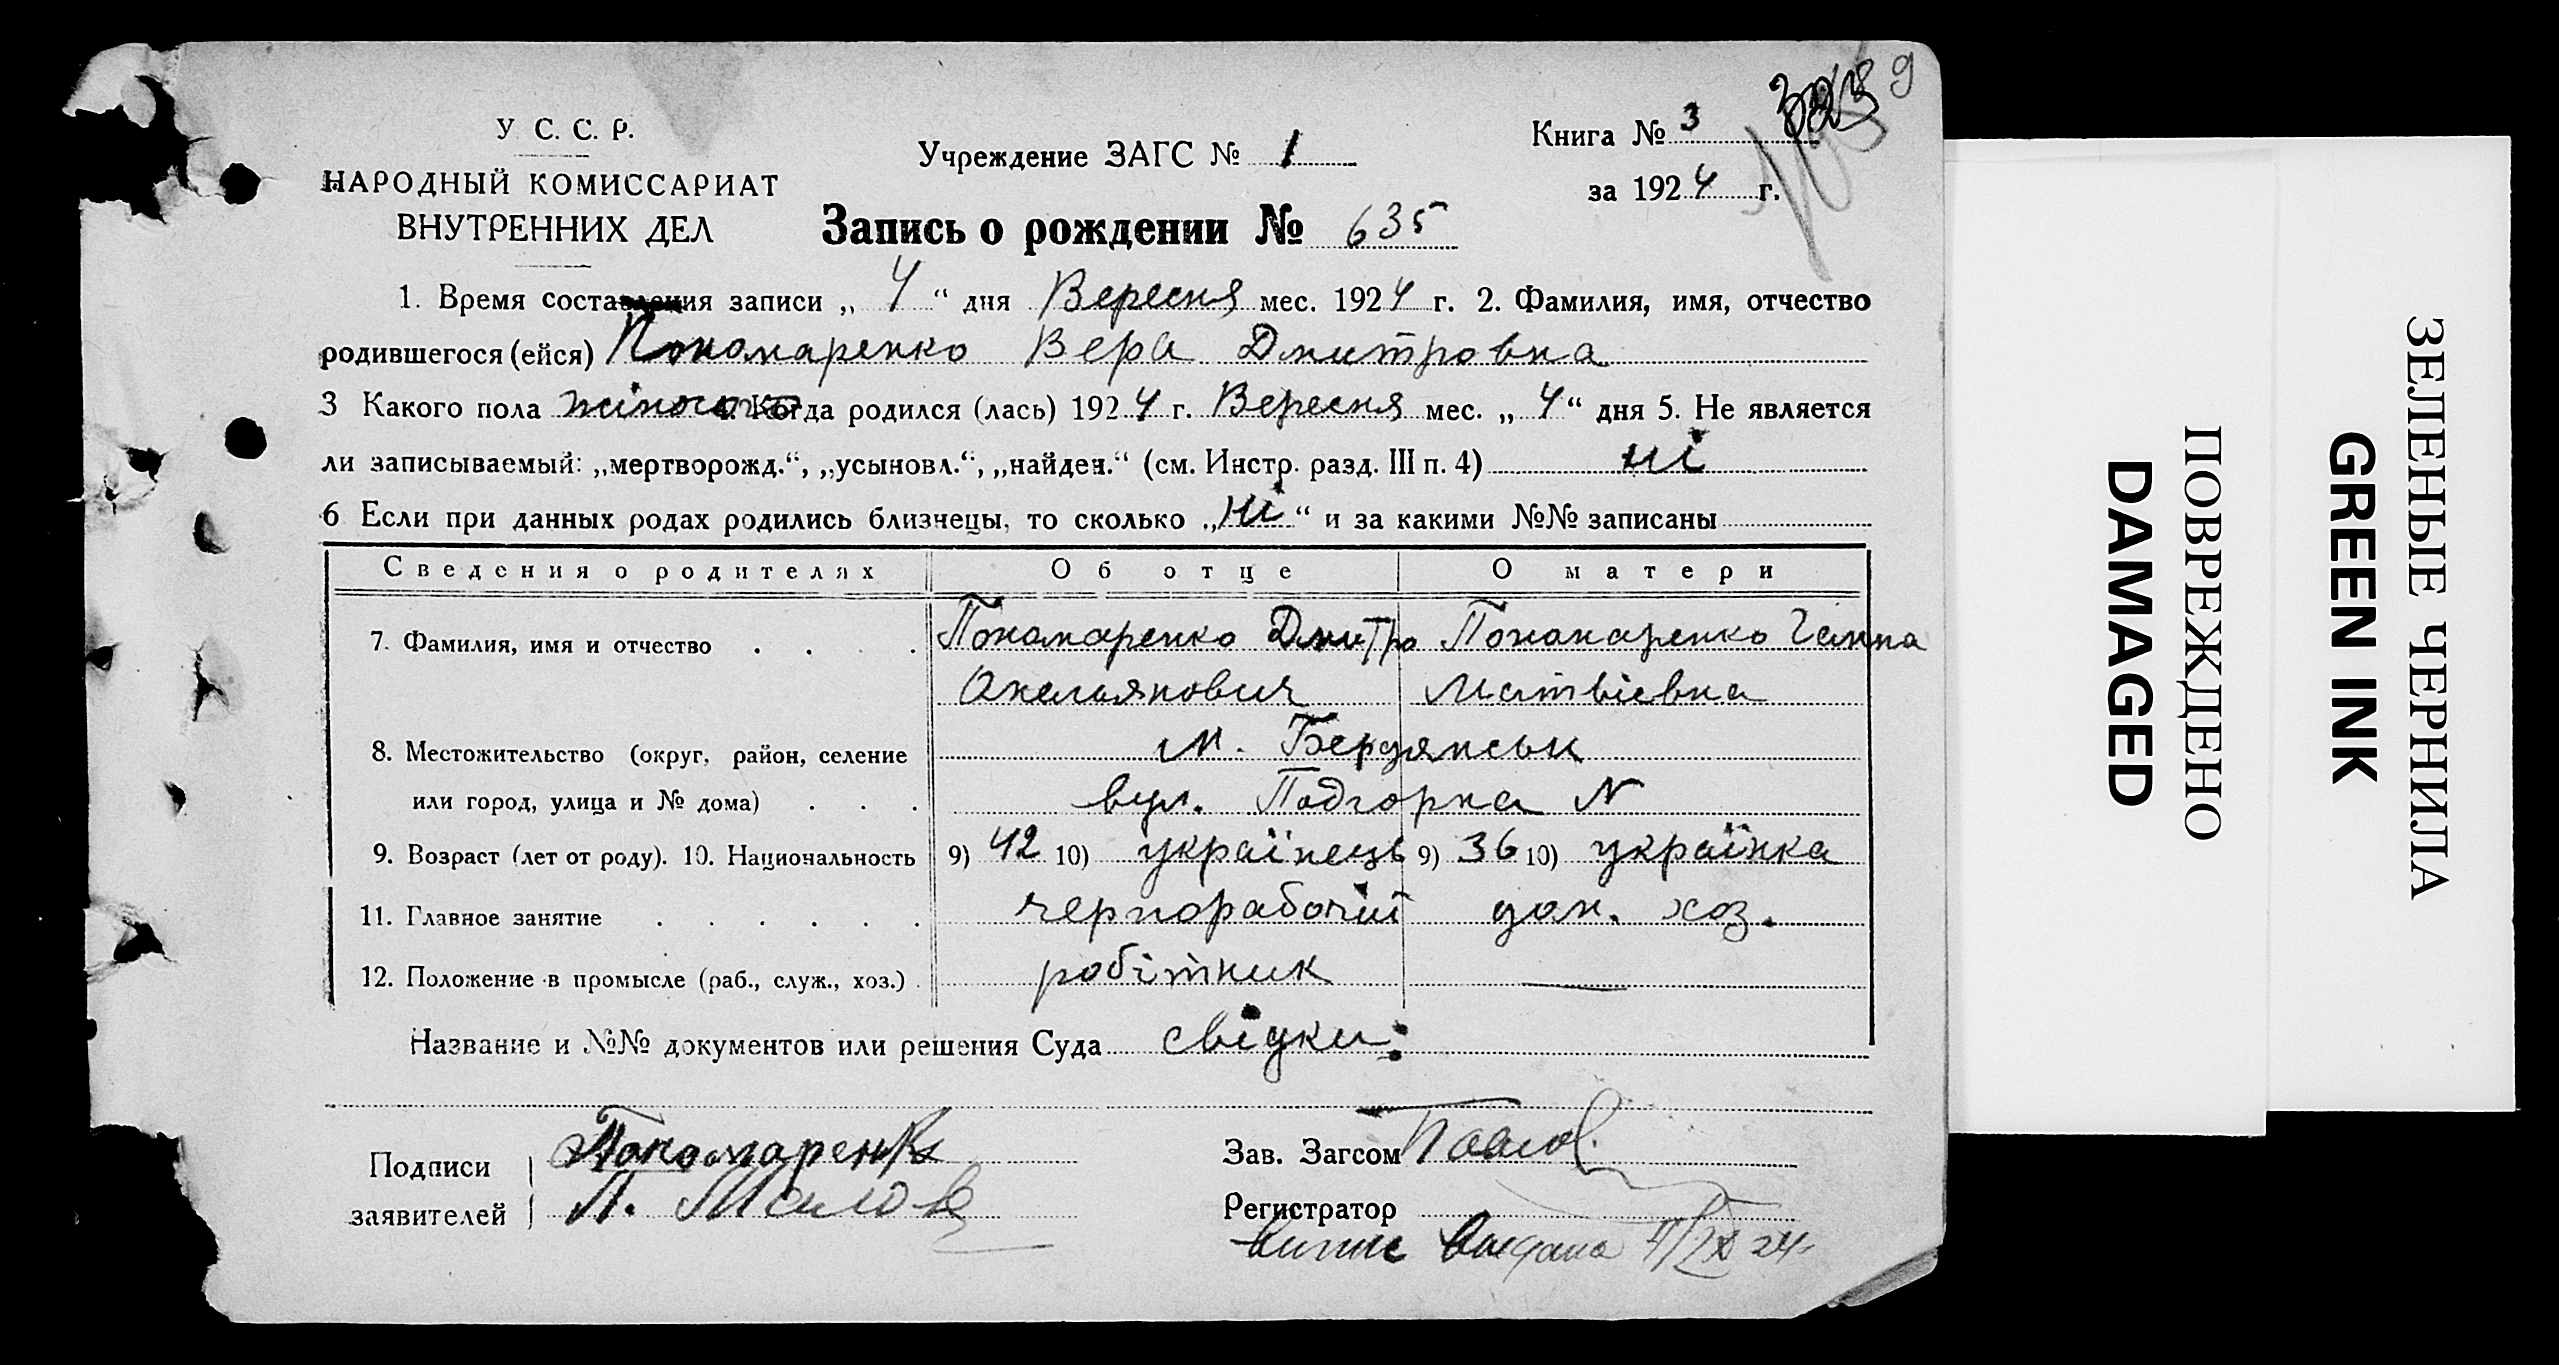 У. С. С. Р.
НАРОДНЫЙ КОМИССАРИАТ
ВНУТРЕННИХ ДЕЛ
Учреждение ЗАГС № 1
Книга № 3
за 1924 г.
9
Запись о рождении № 635
1. Время составления записи „ 4 “ дня Вересня мес. 1924 г. 2. Фамилия, имя, отчество
родившегося (ейся) Пономаренко Вера Дмитровна
3 Какого пола жіночого 4. Когда родился (лась) 1924 г. Вересня мес. „ 4 “ дня 5. Не является
ли записываемый: „мертворожд.“, „усыновл.“, „найден.“ (см. Инстр. разд. III п. 4) ні
6 Если при данных родах родились близнецы, то сколько „ ні “ и за какими №№ записаны
Сведения о родителях Об отце О матери
7. Фамилия, имя и отчество . . . . Пономаренко Дмитро Пономаренко Ганна
Омельянович Матвіевна
м. Бердянськ
8. Местожительство (округ, район, селение
или город, улица и № дома) . . . вул. Подгорна N
9. Возраст (лет от роду). 10. Национальность 9) 42 10) українець 9) 36 10) українка
11. Главное занятие . . . . . . чернорабочій дом. хоз.
12. Положение в промысле (раб., служ., хоз.) . робітник —
Название и №№ документов или решения Суда свідки:
Подписи
заявителей
Пономаренко
Зав. Загсом
Регистратор
видана
24
ПОВРЕЖДЕНО
DAMAGED
ЗЕЛЕНЫЕ ЧЕРНИЛА
GREEN INK